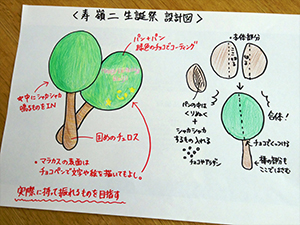 ＜寿 嶺二 生誕祭 設計図＞
パン+パン
緑色のチョコでコーティング
★中にシャカシャカ
鳴るものをIN
固めのチュロス
・マラカスの表面は
チョコペンで文字や絵を描いてもよし。
実際に持って振れるものを目指す
・本体部分
パンの中は
くりぬく
+
シャカシャカ
するものを入れる
合体!
チョコでくっつける
棒の部分を
ここではさむ